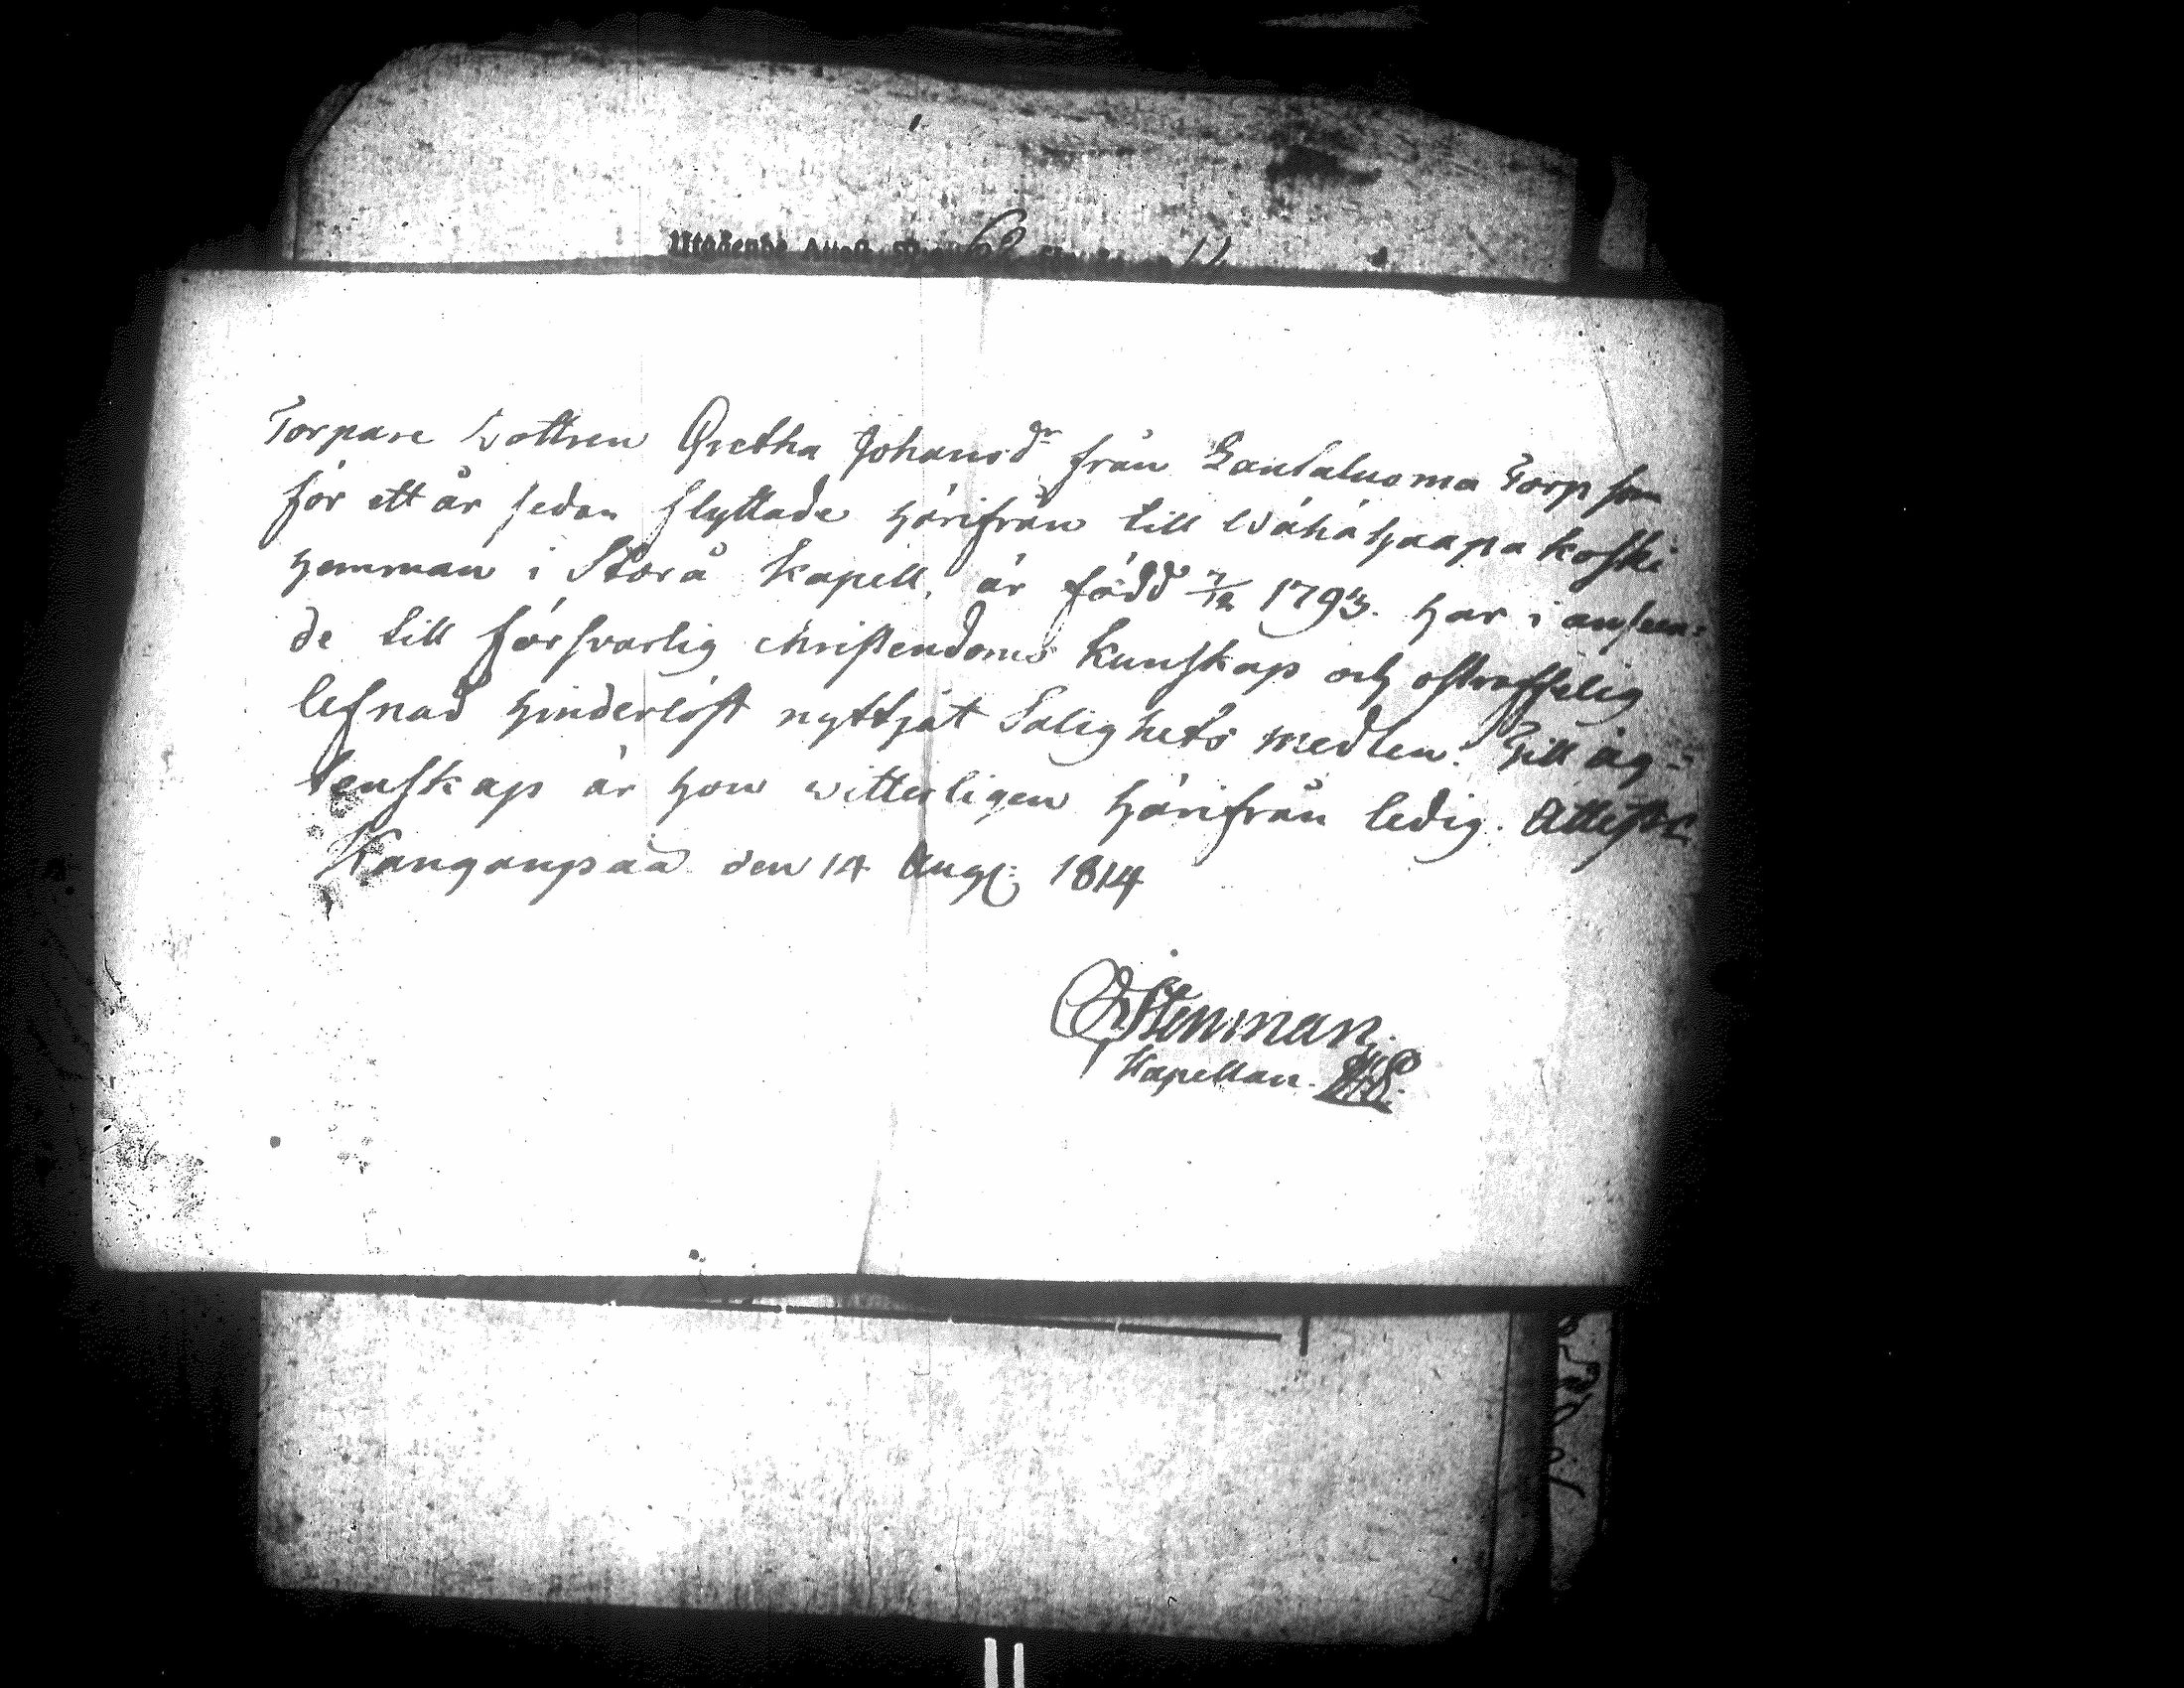 Torpare Dottren Gretha Johansdr från Santaluoma Torp som
för ett år sedan flyttade härifrån till Wähä Haapa koski
Hemman i Storå Kapell, är född 7/12 1793. Har i anseen=
de till försvarlig christendoms Kunskap och ostraffelig
lefnad hinderlöst nyttjat Salighets medlen. Till äg=
tenskap är hon witterligen härifrån ledig. Attest.
Kanganpää den 14 Aug: 1814
Stenman.
Kapellan.